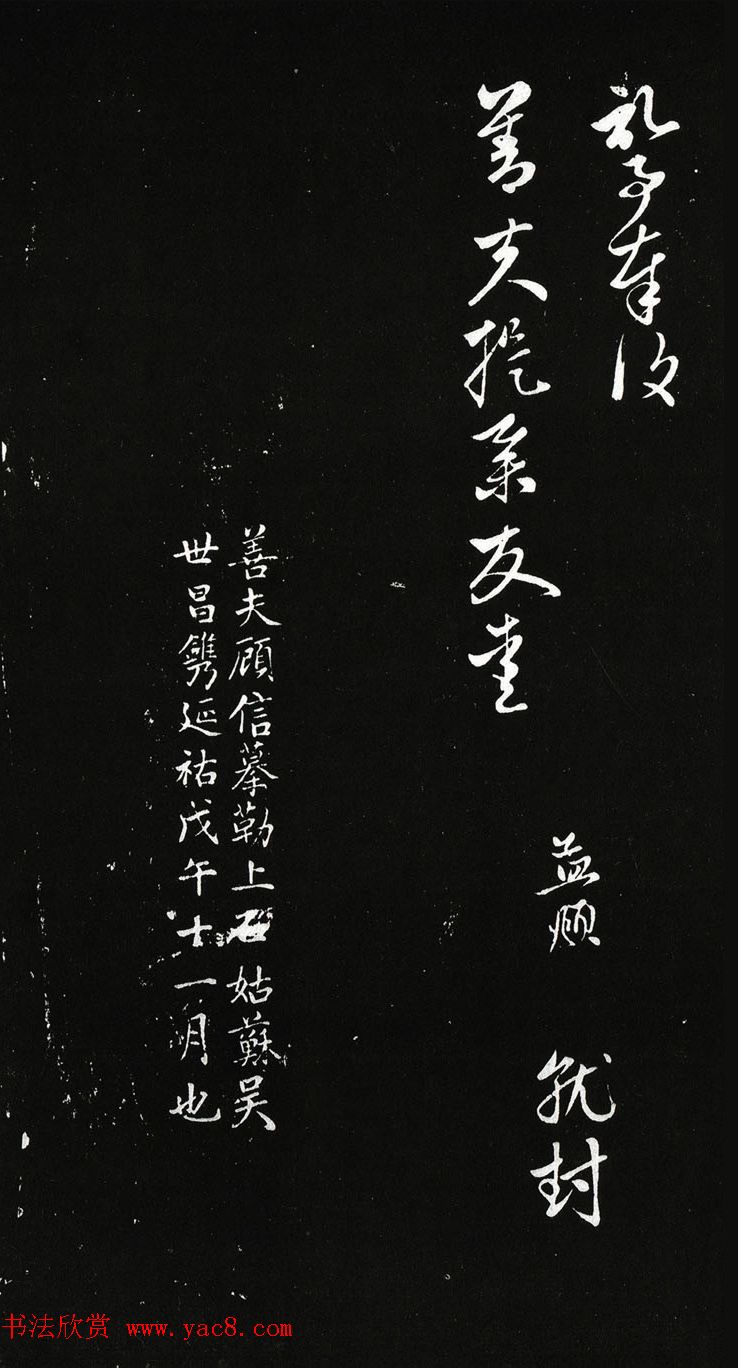 礼事奉復
善夫提親友臺
孟頫 就封
善夫顧信摹勒上石姑蘇吴
世昌鐫延祐戊午十一月也
书法欣赏 www.yac8.com